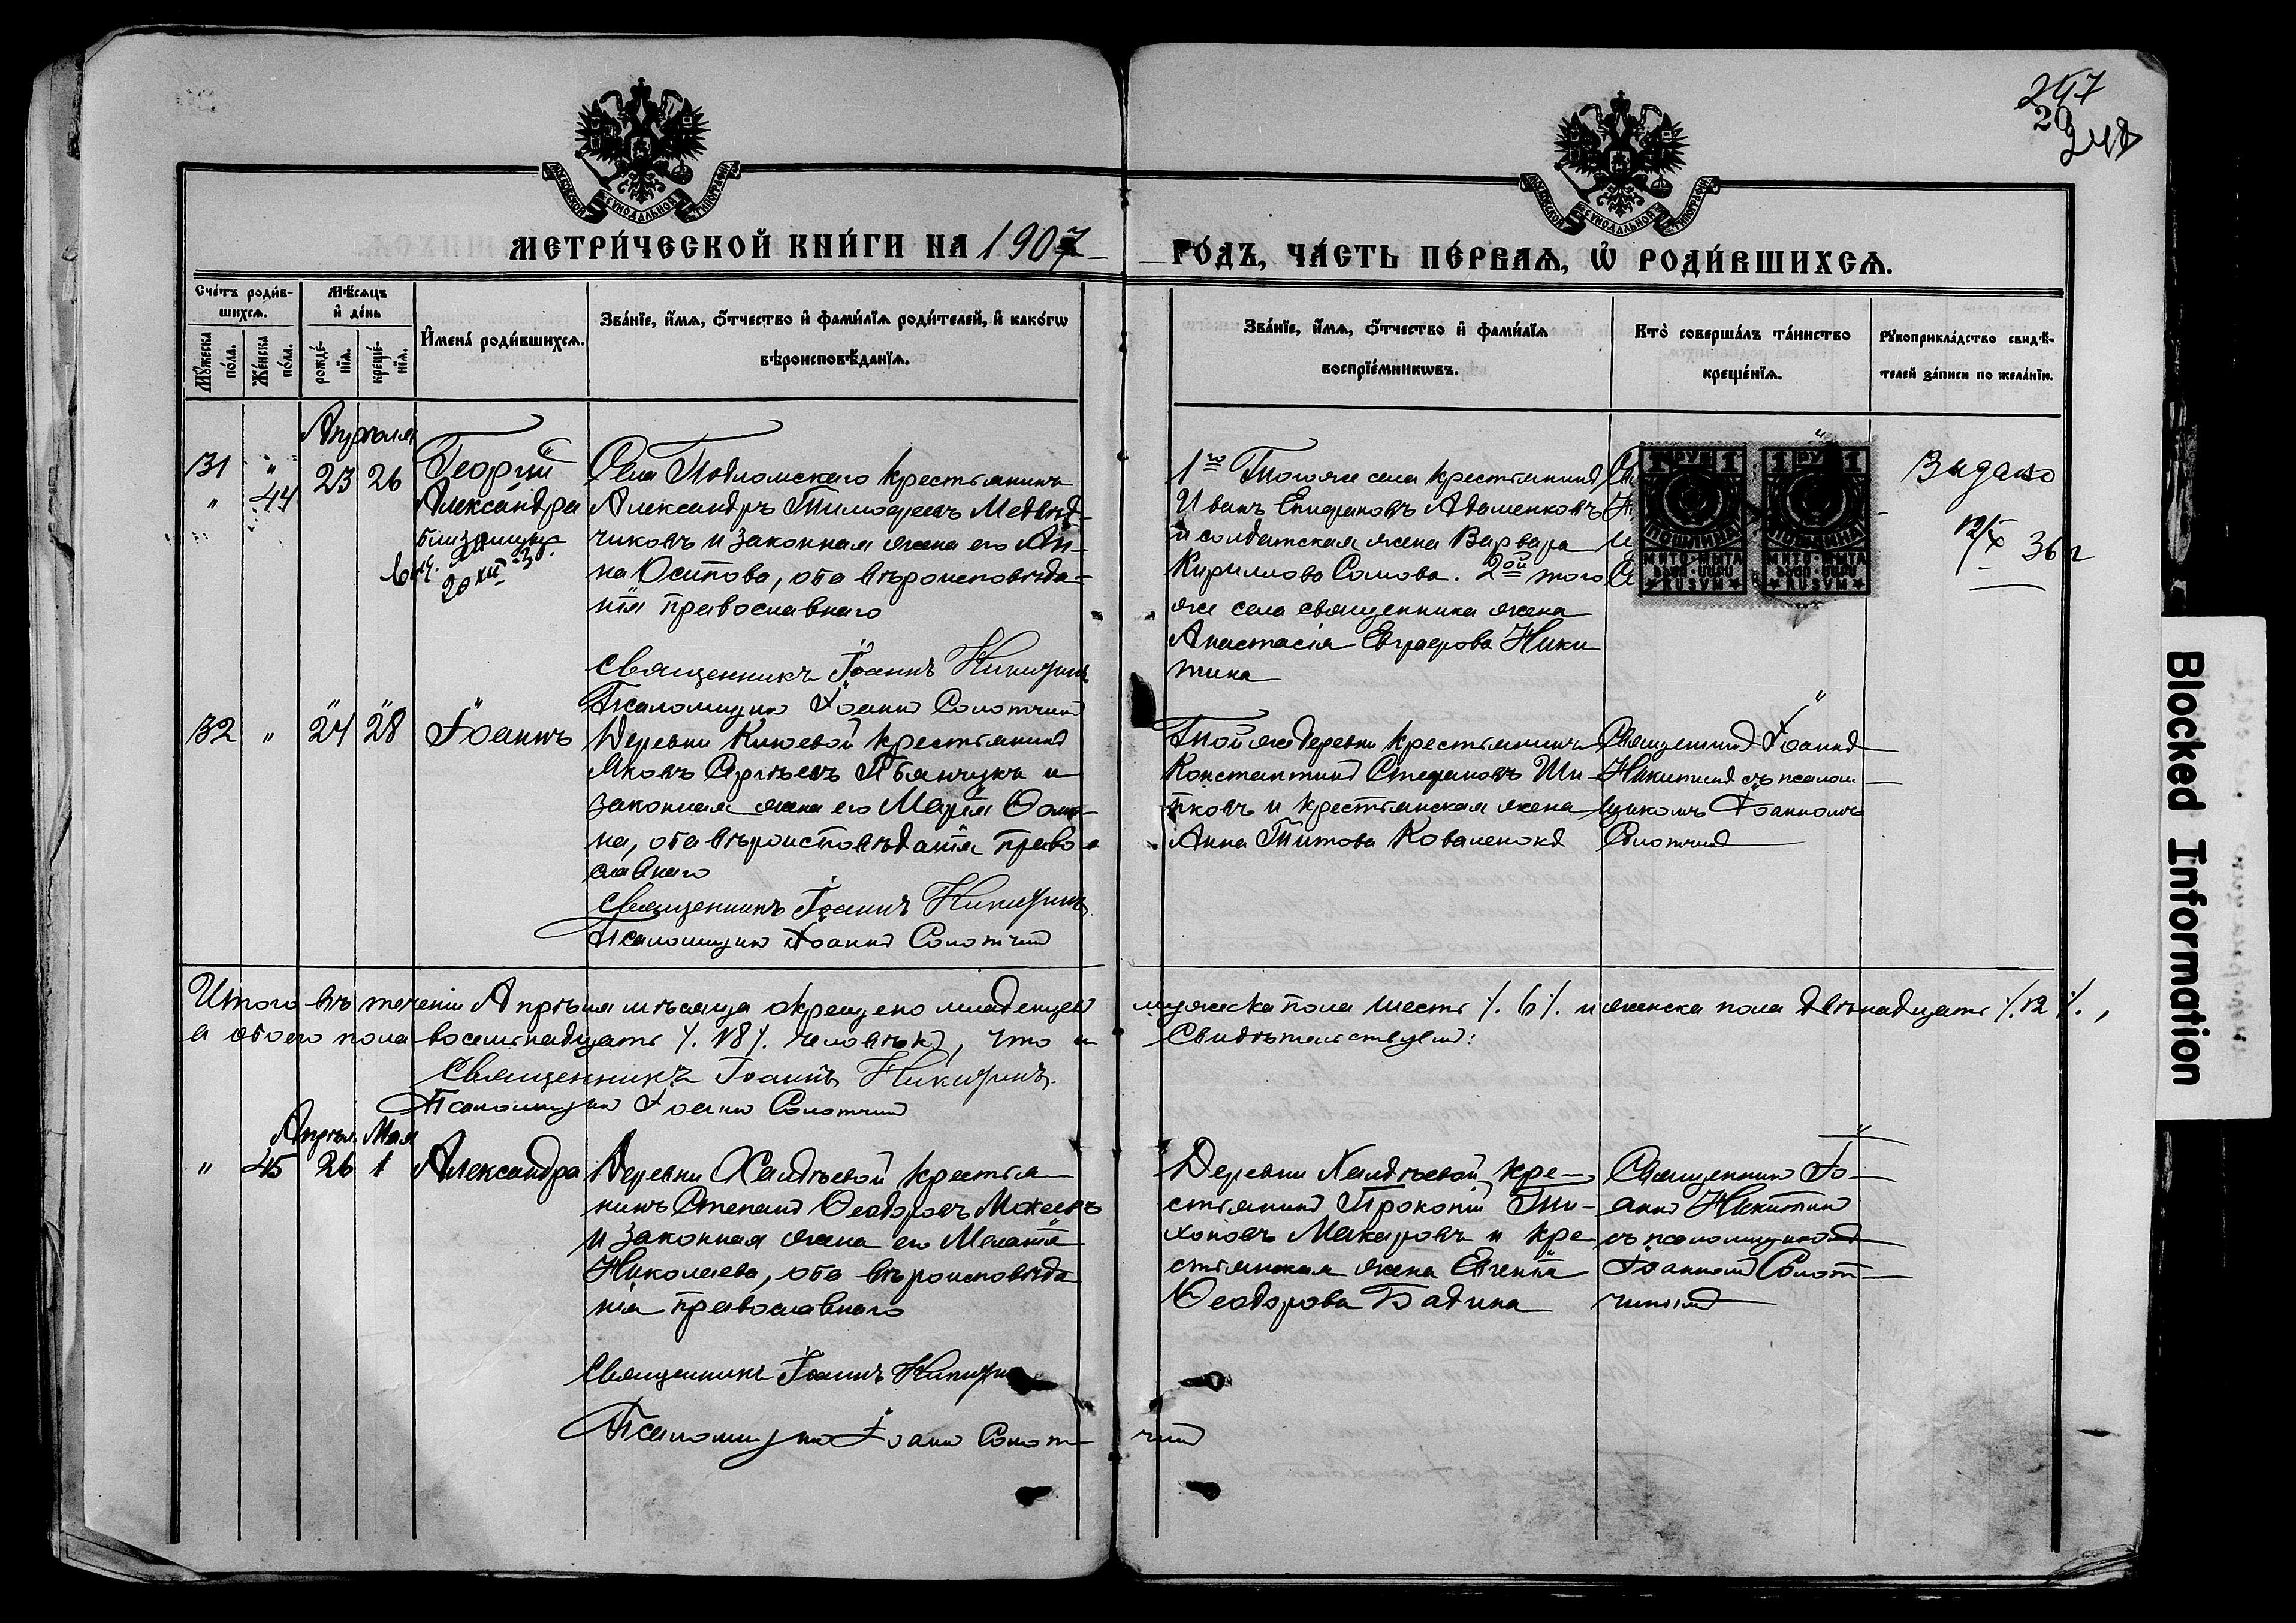 247
20
248
МОСКОВСКОЙ СУНОДАЛЬНОЙ ТИПОГРАФІИ
МОСКОВСКОЙ СУНОДАЛЬНОЙ ТИПОГРАФІИ
МЕТРИ́ЧЕСКОЙ КНИ́ГИ НА 1907
ГО́ДЪ, ЧА́СТЬ ПЕ́РВАѦ, Ѡ҆ РОДИ́ВШИХСѦ.
Сче́тъ роди́в-
шихсѧ.
Мꙋ́жеска по́ла.
Же́нска по́ла.
Мѣ́сѧцъ
и҆ де́нь
рожде́-
нїѧ.
креще́-
нїѧ.
И҆мена̀ роди́вшихсѧ.
Зва́нїе, и҆́мѧ, ѻ҆́тчество и҆ фами́лїѧ роди́телей, и҆ како́гѡ
вѣроисповѣ́данїѧ.
Зва́нїе, и҆́мѧ, ѻ҆́тчество и҆ фами́лїѧ
воспрїе́мникѡвъ.
Кто̀ соверша́лъ та́инство
креще́нїѧ.
Рꙋкоприкла́дство свидѣ́-
телей за́писи по жела́нїю.
Апрѣля
31 " 23 26 Георгій
" 44 Александра
близнецы
20 XII
Села Подломскаго крестьянинъ
Александръ Тимофеевъ Медвѣд-
чиковъ и законная жена его Ан-
на Осипова, оба вѣроисповѣда-
нія православнаго
Священникъ Іоаннъ Никитинъ
Псаломщикъ Іоаннъ Солотчинъ
1го Тогоже села крестьянинъ
Иванъ Епифановъ Адаменковъ
и солдатская жена Варвара
Кириллова Сомова. 2ой того
же села священника жена
Анастасія Евграфова Ники-
тина
1 РУБ 1
ПОШЛИНА
МИТО МЫТА
RUSVM
1 РУБ 1
ПОШЛИНА
МИТО МЫТА
RUSVM
Выдано
12/X 36 г
32 " 24 28 Іоаннъ
Деревни Ключевой крестьянинъ
Яковъ Сергѣевъ Пьянчукъ и
законная жена его Марія Ѳоми-
на, оба вѣроисповѣданія право-
славнаго
Священникъ Іоаннъ Никитинъ
Псаломщикъ Іоаннъ Солотчинъ
Тойже деревни крестьянинъ
Константинъ Стефановъ Ши-
пковъ и крестьянская жена
Анна Титова Коваленокъ
Священникъ Іоаннъ
Никитинъ съ псалом-
щикомъ Іоанномъ
Солотчинъ
Итого въ теченіи Апрѣля мѣсяца окрещено младенцевъ мужеска пола шесть ٪. 6 ٪. и женска пола двѣнадцать ٪. 12 ٪.,
а обоего пола восемнадцать ٪. 18 ٪. человѣкъ, что и Свидѣтельствуемъ:
Священникъ Іоаннъ Никитинъ.
Псаломщикъ Іоаннъ Солотчинъ
Апрѣл. Мая
" 45 26 1 Александра
Деревни Халдѣевой крестья-
нинъ Степанъ Ѳеодоровъ Мокеевъ
и законная жена его Меланія
Николаева, оба вѣроисповѣда
нія православнаго
Священникъ Іоаннъ Никитинъ
Псаломщикъ Іоаннъ Солотчинъ
Деревни Халдѣевой кре-
стьянинъ Прокопій Ти-
хоновъ Макаровъ и кре-
стьянская жена Евгенія
Ѳеодорова Бадина
Священникъ Іо-
аннъ Никитинъ
съ псаломщикомъ
Іоанномъ Солот-
чинымъ
Blocked Information